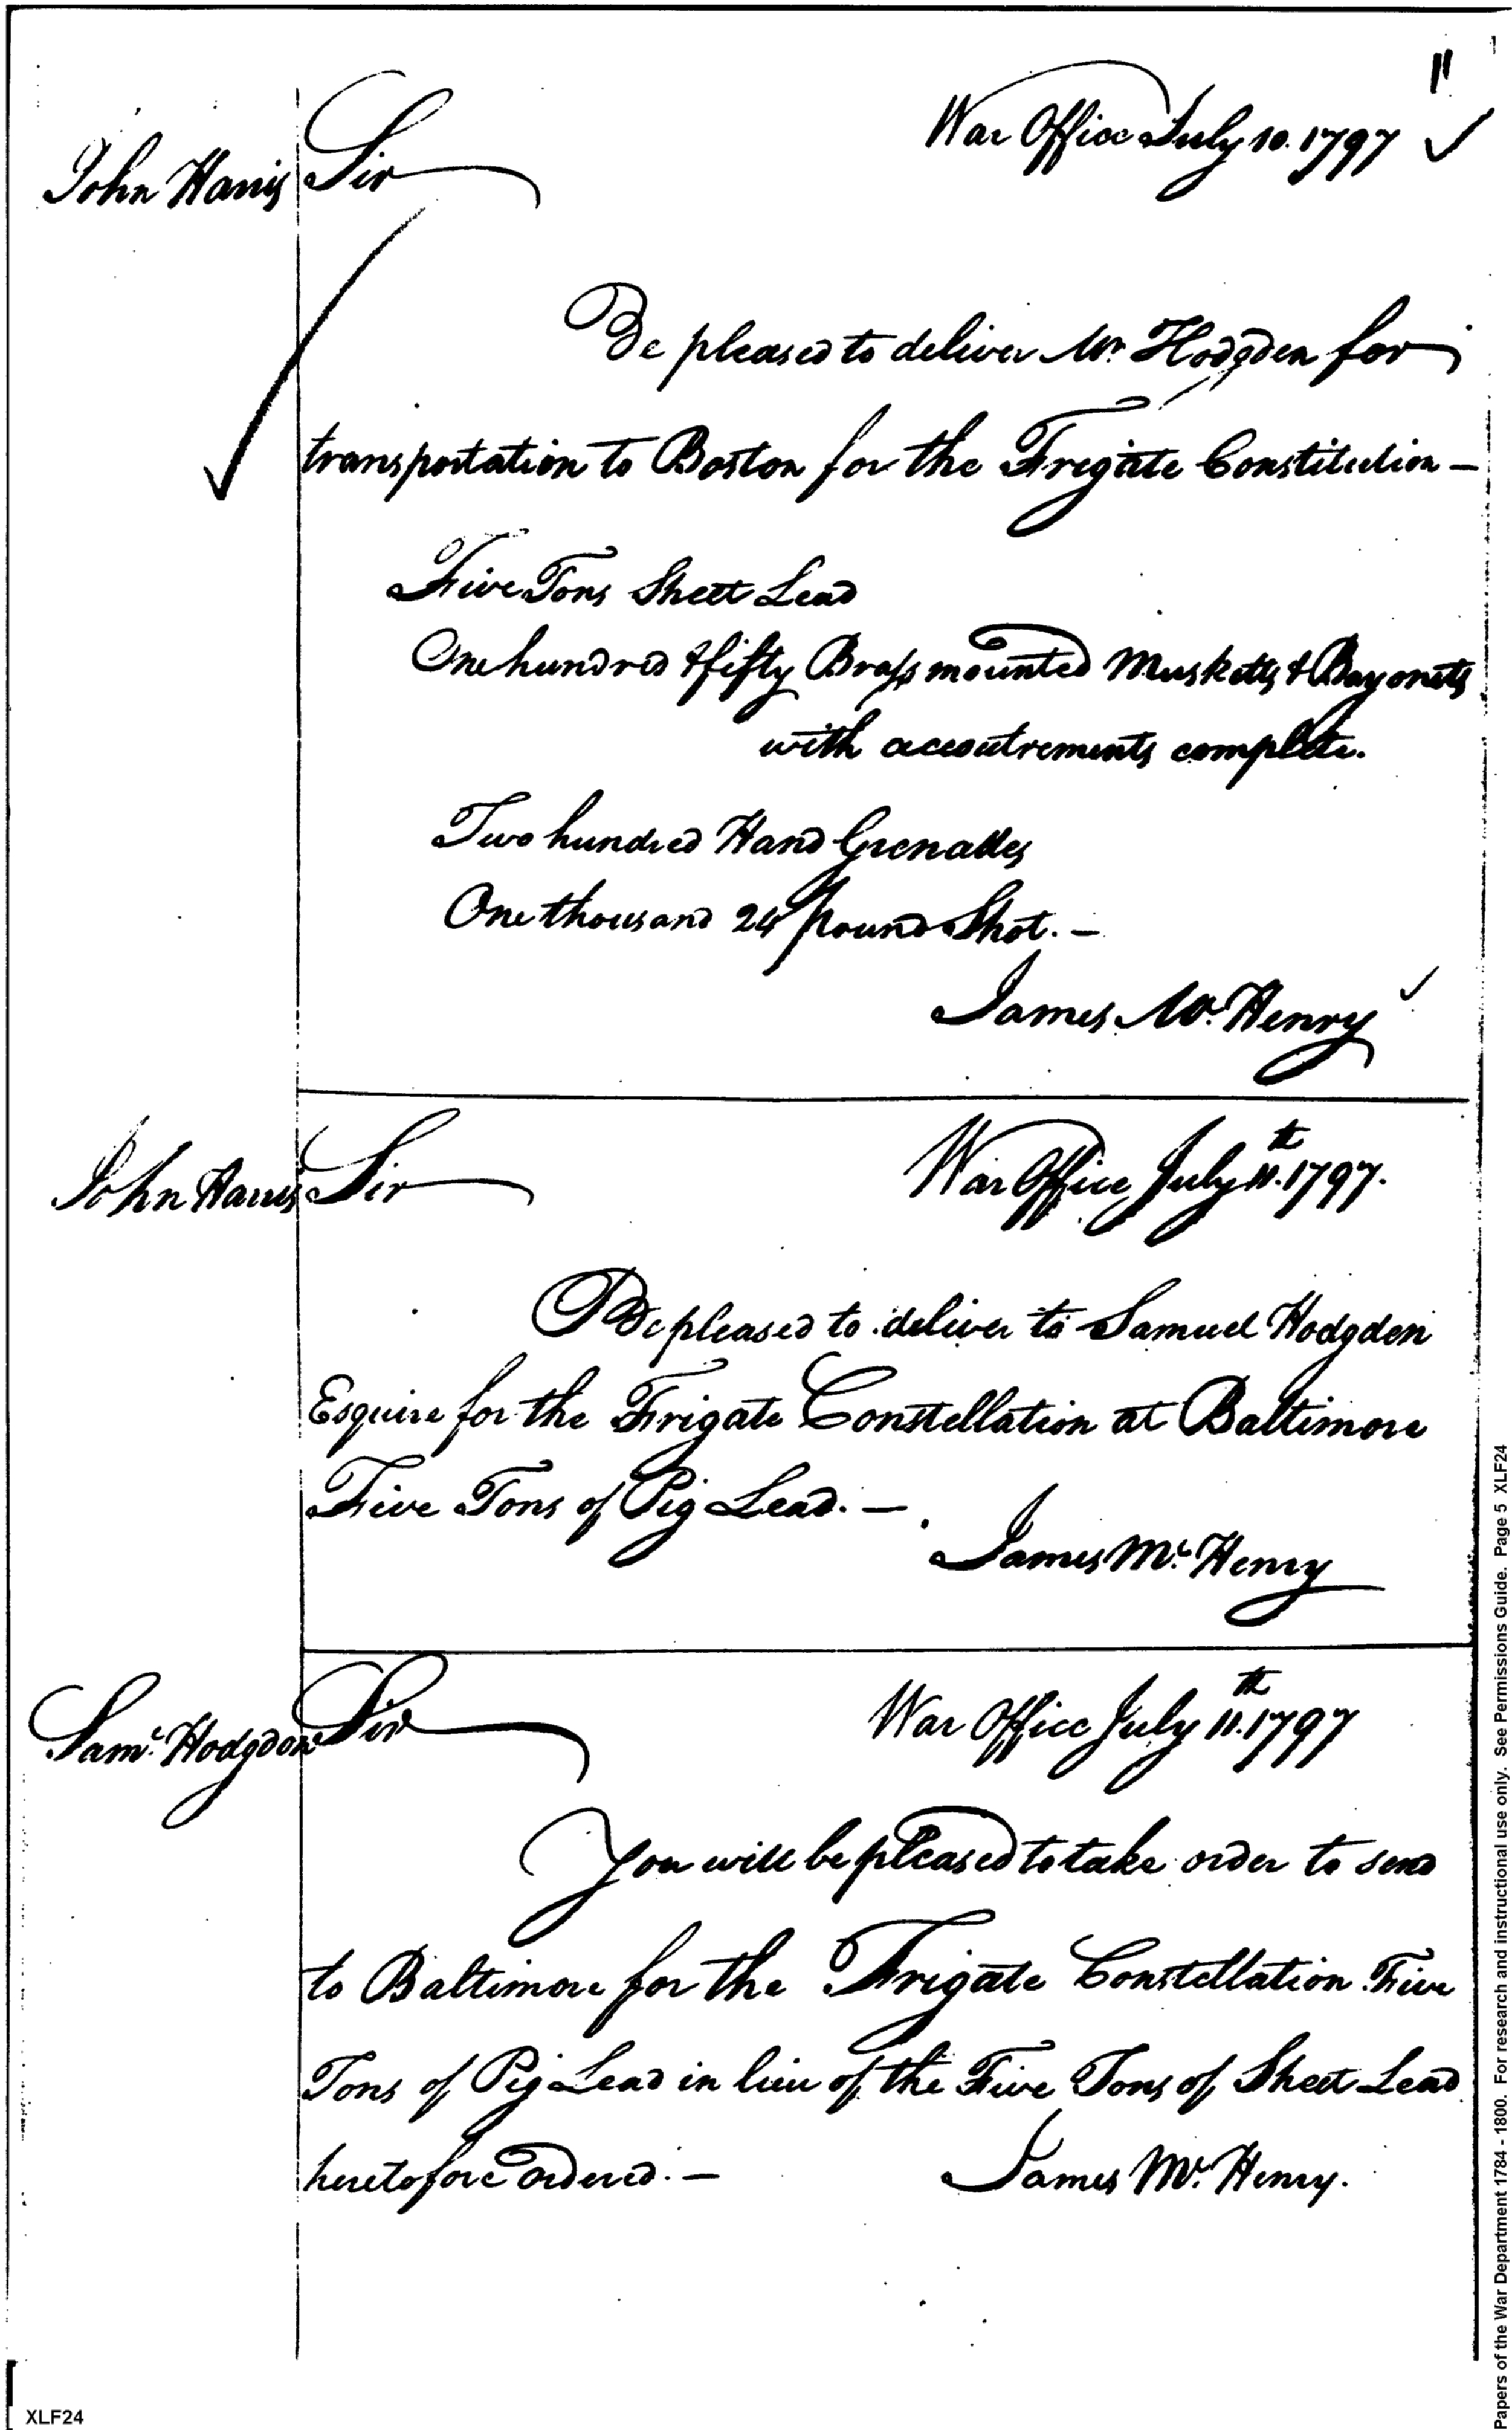 11
War Office July 10. 1797
John Harris
Sir
Be pleased to deliver Mr. Hodgden for
transportation to Boston for the Fregate Constitution —
Five Tons Sheet Lead
One hundred & fifty Brass mounted Musketts & Bayonets
with accoutrements complete.
Two hundred Hand Grenades
One thousand 24 pound Shot. —
James Mc. Henry
John Harris
Sir
War Office July 11th. 1797.
Be pleased to deliver to Samuel Hodgden
Esquire for the Frigate Constellation at Baltimore
Five Tons of Pig Lead. —
James Mc. Henry
Saml. Hodgdon
Sir
War Office July 11th. 1797
You will be pleased to take order to send
to Baltimore for the Frigate Constellation Five
Tons of Pig Lead in lieu of the Five Tons of Sheet Lead
heretofore ordered. —
James Mc. Henry.
XLF24
Papers of the War Department 1784 - 1800. For research and instructional use only. See Permissions Guide. Page 5 XLF24